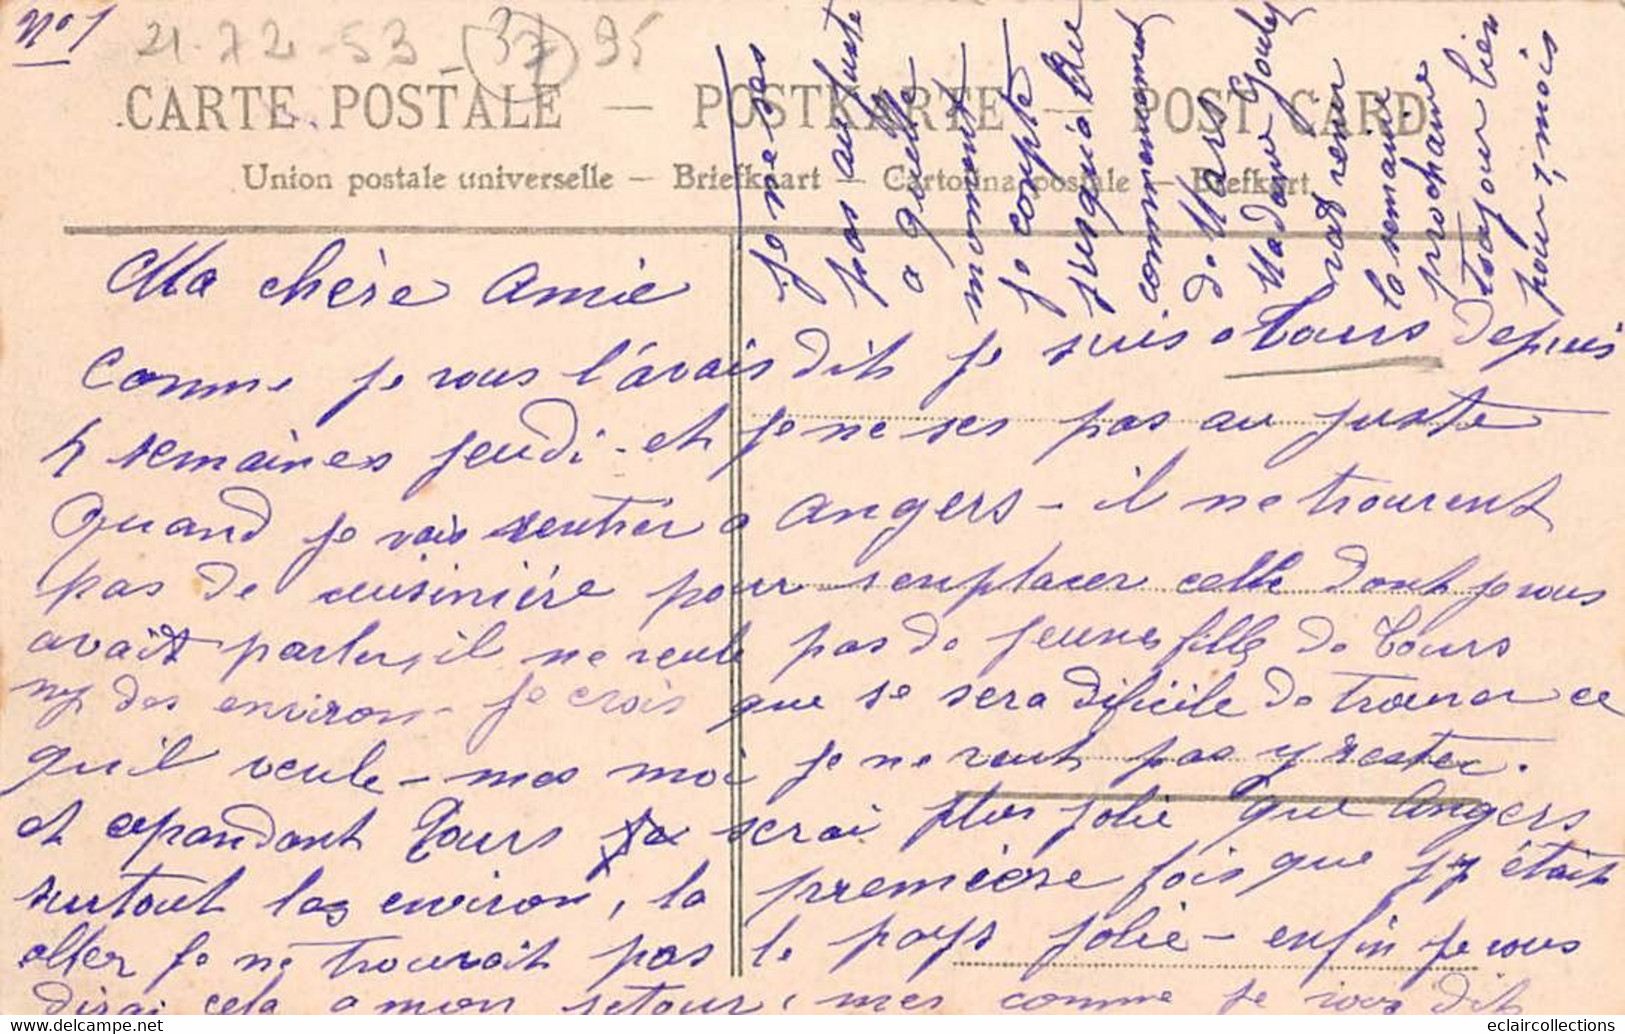 N° 1
21-72-53-37 95
CARTE POSTALE — POSTKARTE — POST CARD
Union postale universelle — Briefkaart — Cartolina postale — Brefkort
Ma chère Amie
Comme je vous l'avais dit je suis a Tours depuis
4 semaines jeudi - et je ne ses pas au juste
quand je vais rentrer a Angers - il ne trouvent
pas de cuisinière pour remplacer celle dont je vous
avait parler, il ne veule pas de jeunes fille de Tours
ny des environ - je crois que se sera dificile de trouver ce
qu'il veule - mes moi je ne veut pas y rester.
et cependant Tours serai plus jolie que Angers
surtout les environ, la première fois que j'y était
aller je ne trouvait pas le pays jolie - enfin je vous
dirai cela a mon retour, mes comme je vous dit
je ne ses
pas au juste
a quelle
moment
je compte
jusquio au
commencement
de Mars
Madame
vat venir
la semaine
prochaine
pour mois
eclaircollections@delcampe.net